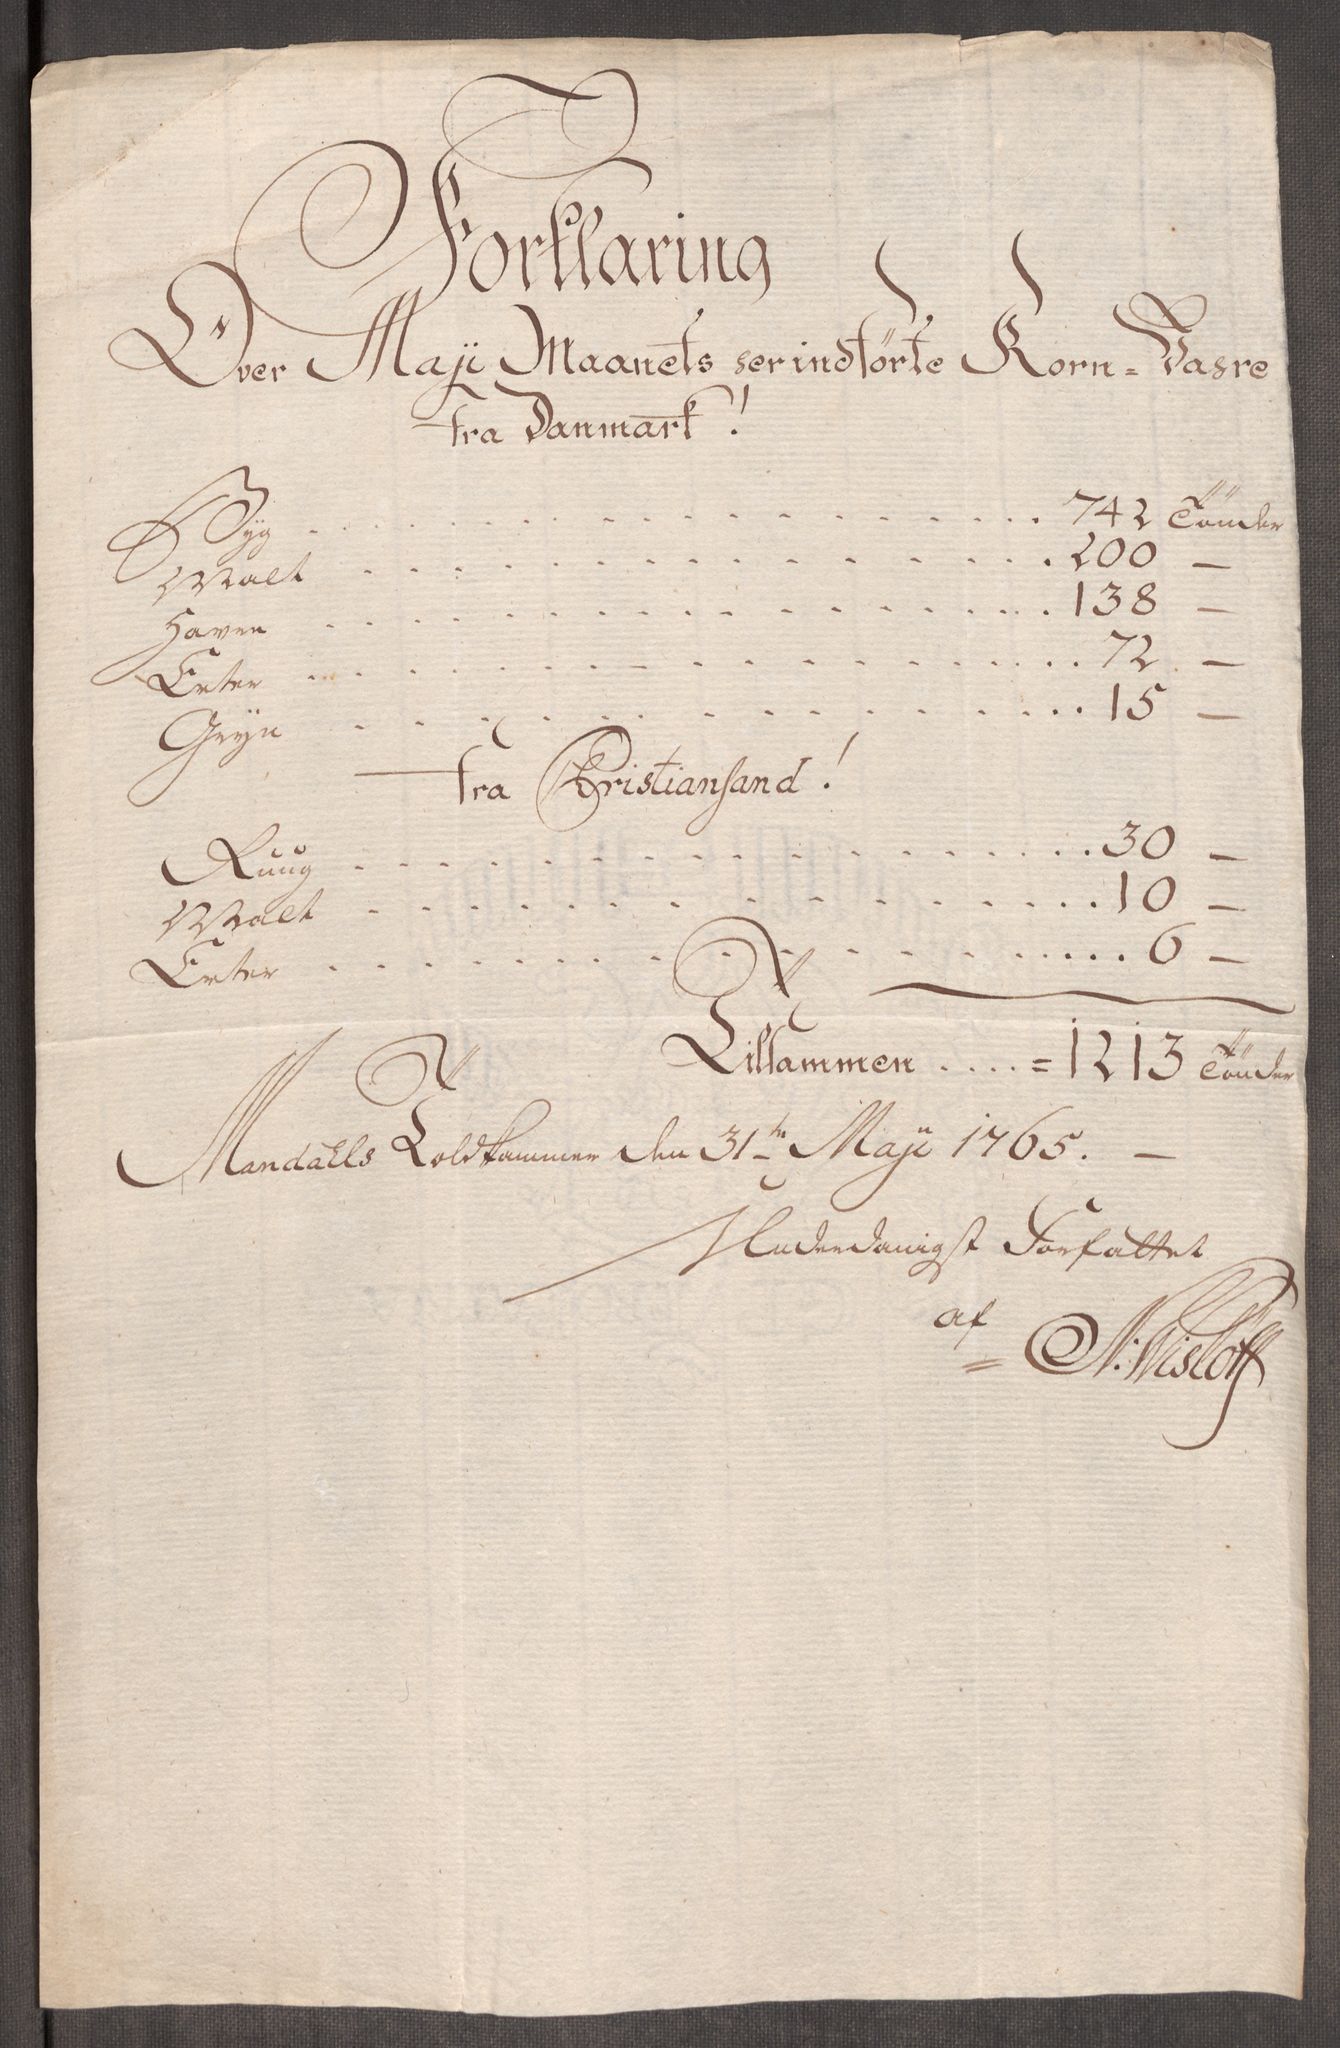 Forklaring
Over Maji Maanets her indførte Korn = Vahre
fra Danmark!
Byg . . . . . . . . . . . . . . . . . 742 Tönder
Malt . . . . . . . . . . . . . . . . . 200 —
Haver . . . . . . . . . . . . . . . . . 138 —
Erter . . . . . . . . . . . . . . . . . 72 —
Gryn . . . . . . . . . . . . . . . . . 15 —
fra Christiansand!
Ruug . . . . . . . . . . . . . . . . . 30 —
Malt . . . . . . . . . . . . . . . . . 10 —
Erter . . . . . . . . . . . . . . . . . 6 —
Tilsammen . . . . = 1213 Tönder
Mandahls Toldkammer den 31te Maji 1765. —
Underdanigst Forfattet
af
N: Wisløff